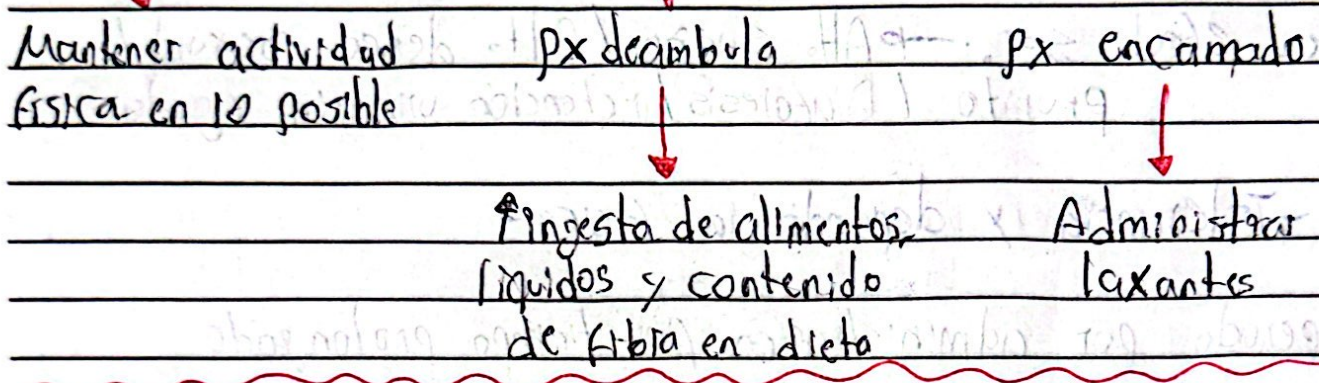 Mantener actividad
física en lo posible
px deambula
↑ingesta de alimentos,
líquidos y contenido
de fibra en dieta
px encamado
Administrar
laxantes